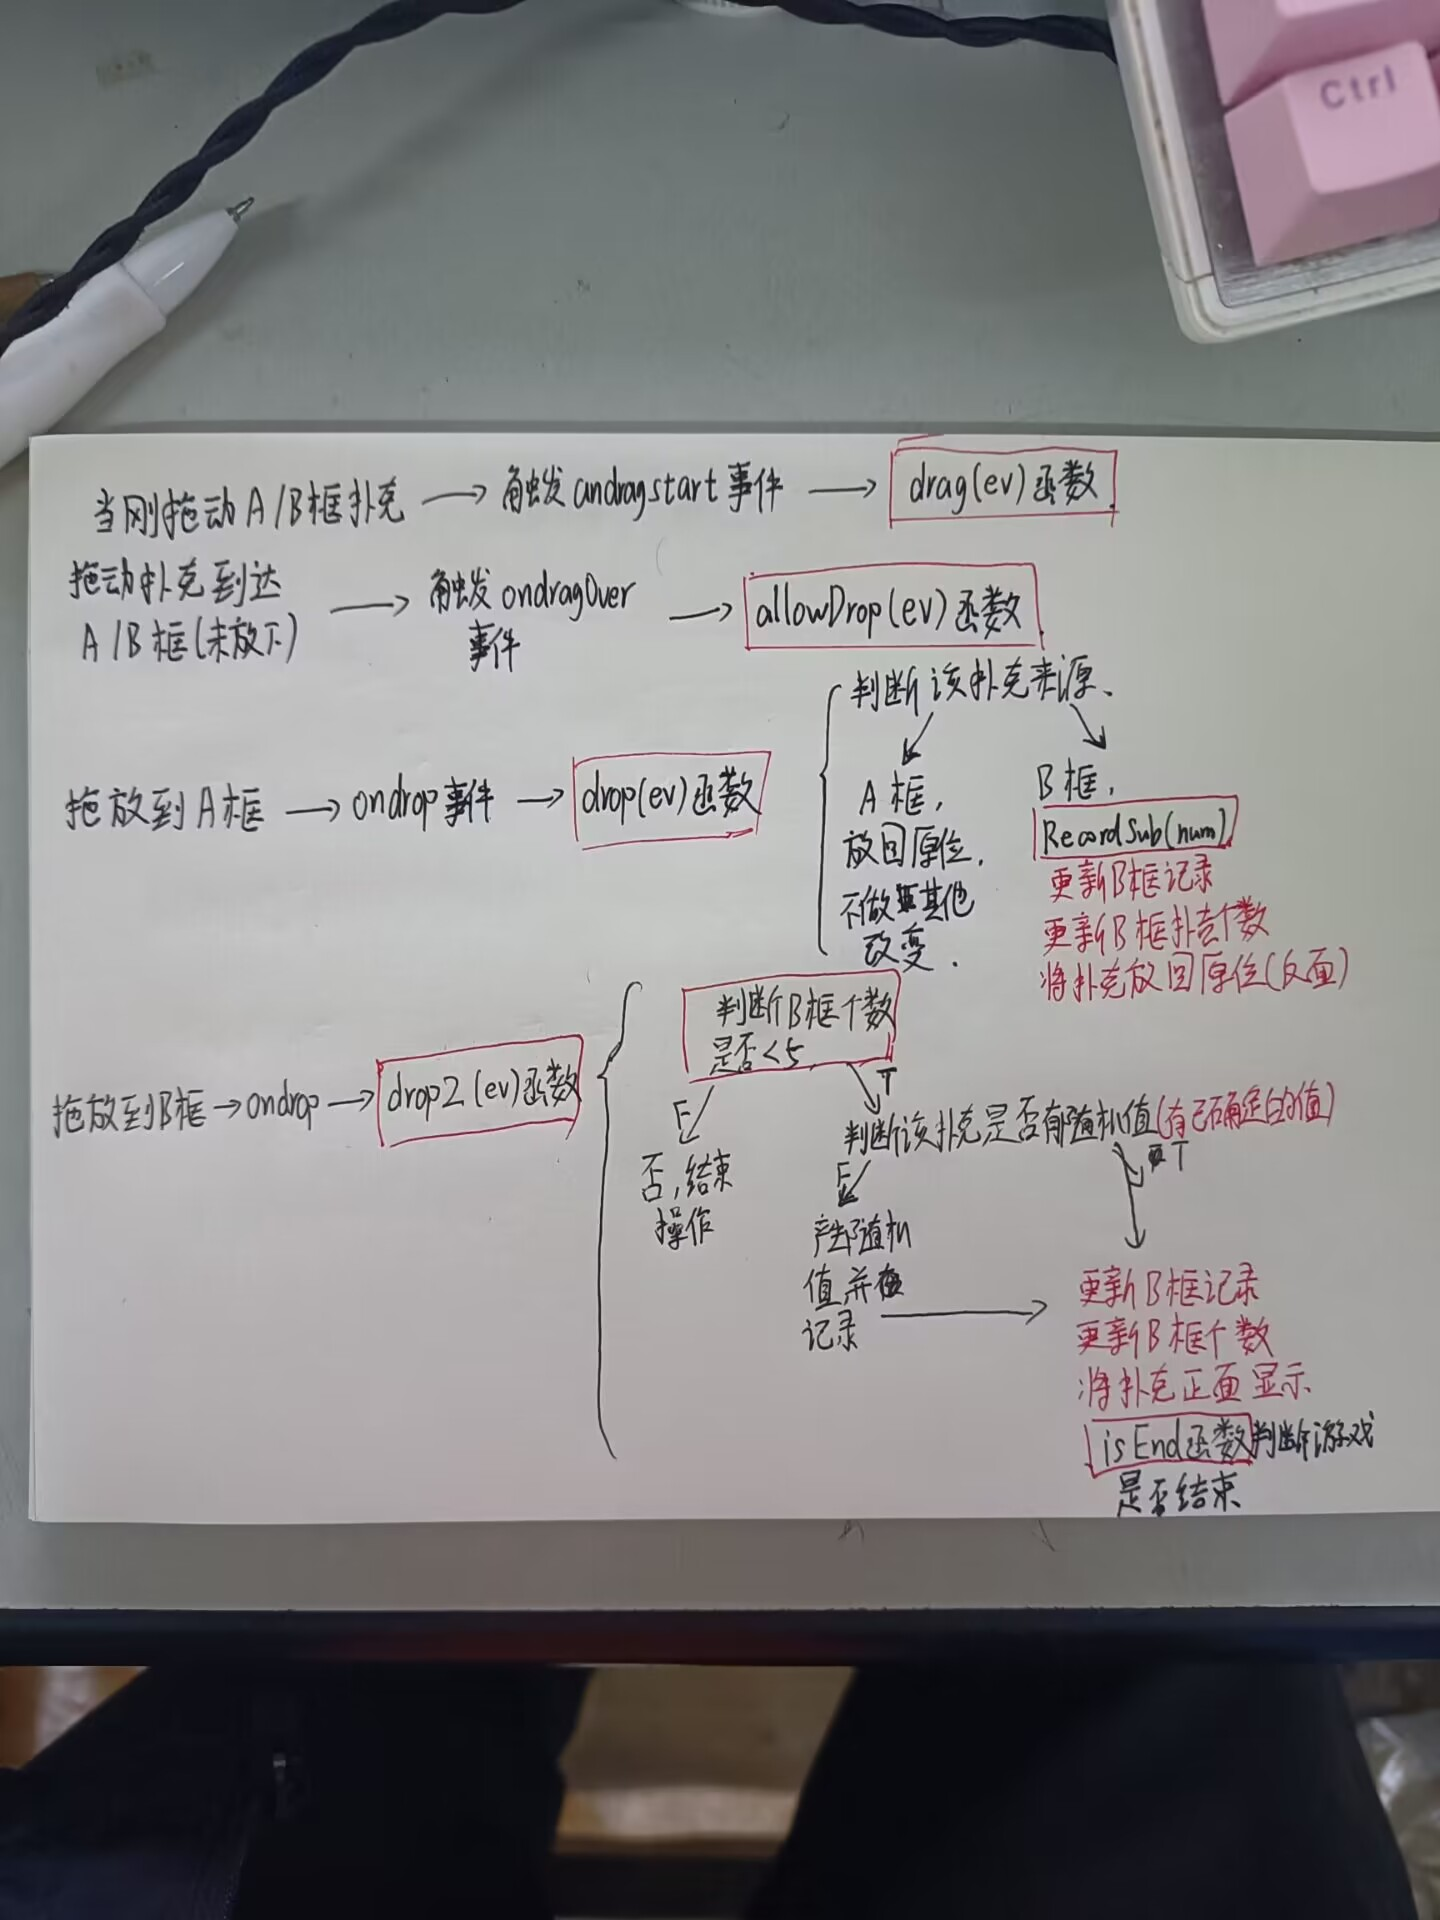 Ctrl
当刚拖动A/B框扑克 → 触发andragstart事件 → drag(ev)函数
拖动扑克到达
A/B框(未放下) → 触发ondragOver
事件 → allowDrop(ev)函数
拖放到A框 → ondrop事件 → drop(ev)函数
判断该扑克来源、
A框，
放回原位，
不做其他
改变.
B框，
RecordSub(num)
更新B框记录
更新B框扑克个数
将扑克放回原位(反面)
拖放到B框 → ondrop → drop2(ev)函数
判断B框个数
是否<5
F
否,结束
操作
T
判断该扑克是否有随机值(有已确定的值)
F
产生随机
值并
记录
T
更新B框记录
更新B框个数
将扑克正面显示
isEnd函数判断游戏
是否结束